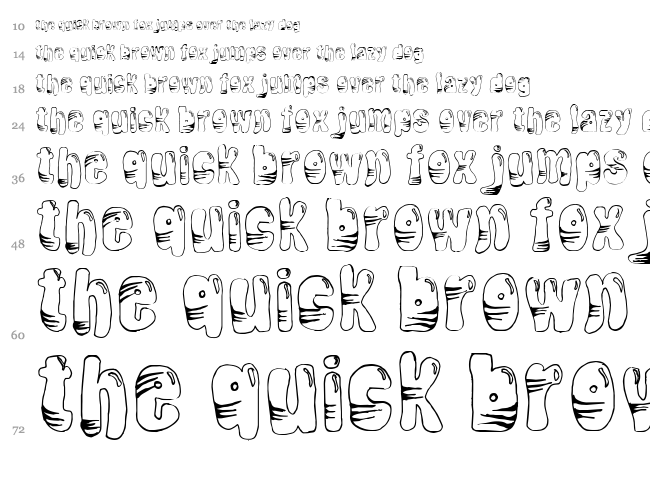 10 the quick brown fox jumps over the lazy dog
14 the quick brown fox jumps over the lazy dog
18 the quick brown fox jumps over the lazy dog
24 the quick brown fox jumps over the lazy d
36 the quick brown fox jumps o
48 the quick brown fox j
60 the quick brown
72 the quick brow